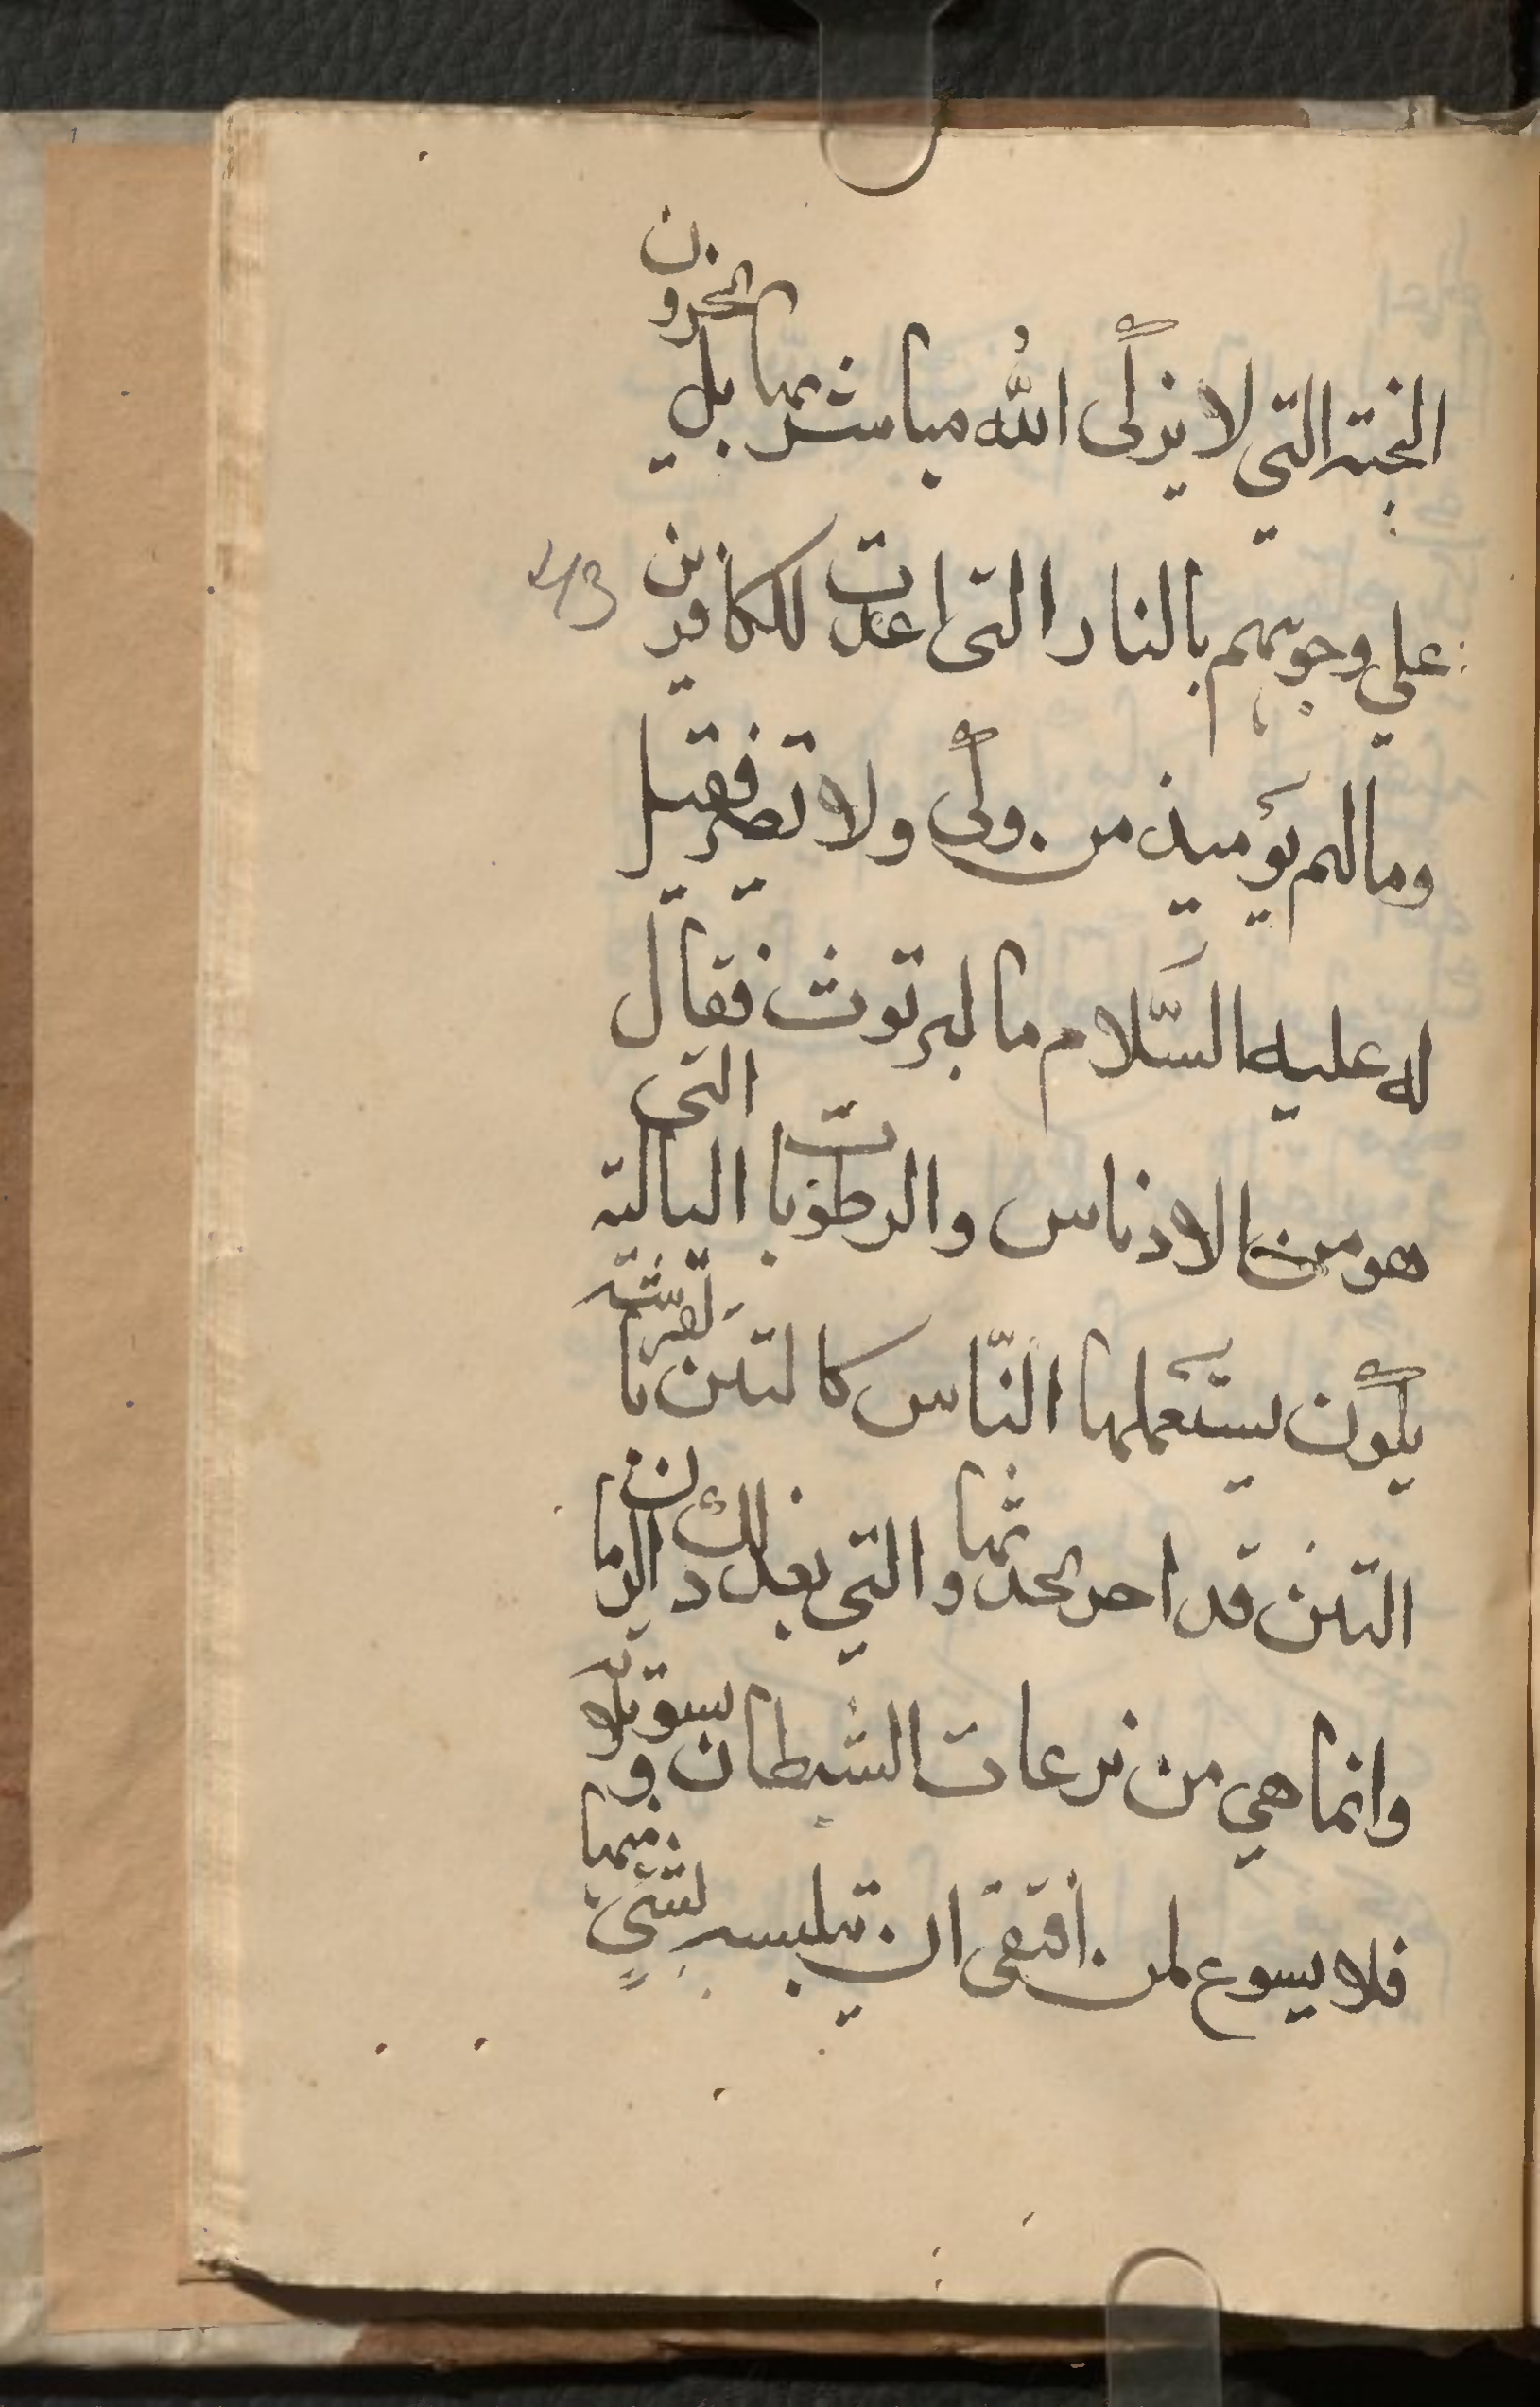 الخبته التي لا يزكى الله مباشرتها بل يخرون
على وجوههم بالنار التى اعدت للكافرين
43
وما لهم يوميذ من ولى ولا نصير فقيل
له عليه السّلام ما البرتوث فقال
هو من الادناس والرطوبات البالية التي
يكون يستعملها النّاس كالتتن
التتن قد احر الحدثها والتي بعد ذلك الزمان
وانما هي من نزعات الشيطان و
فلا يسوع لمن اتقى ان يتلبس بشيءٍ منها